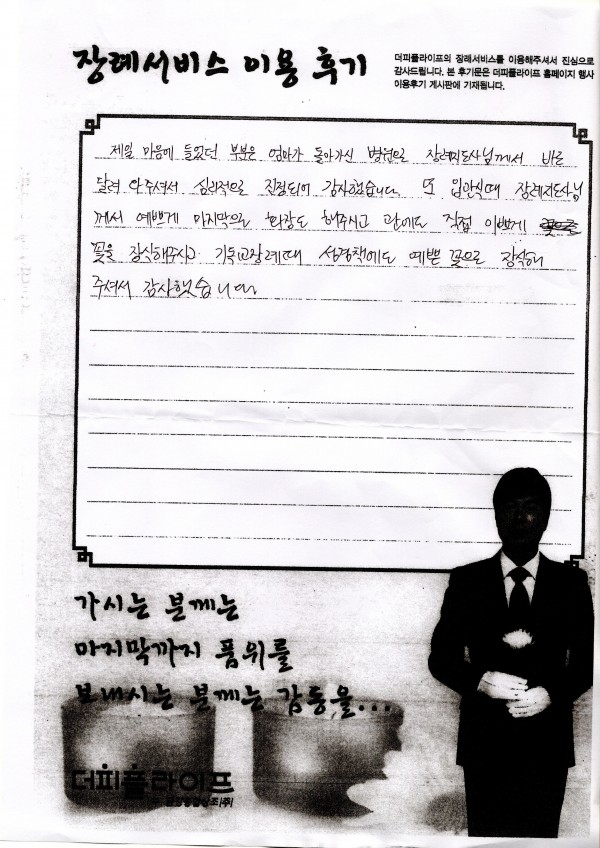 장례서비스 이용 후기
더피플라이프의 장례서비스를 이용해주셔서 진심으로
감사드립니다. 본 후기문은 더피플라이프 홈페이지 행사
이용후기 게시판에 기재됩니다.
제일 마음에 들었던 부분은 엄마가 돌아가신 병원으로 장례지도사님께서 바로
달려 와주셔서 심리적으로 진정되어 감사했습니다. 또 입관식때 장례지도사님
께서 예쁘게 마지막으로 화장도 해주시고 관에도 직접 이쁘게
꽃을 장식해주시고 기독교장례때 성경책에도 예쁜 꽃으로 장식해
주셔서 감사했습니다.
가시는 분께는
마지막까지 품위를
보내시는 분께는 감동을...
더피플라이프